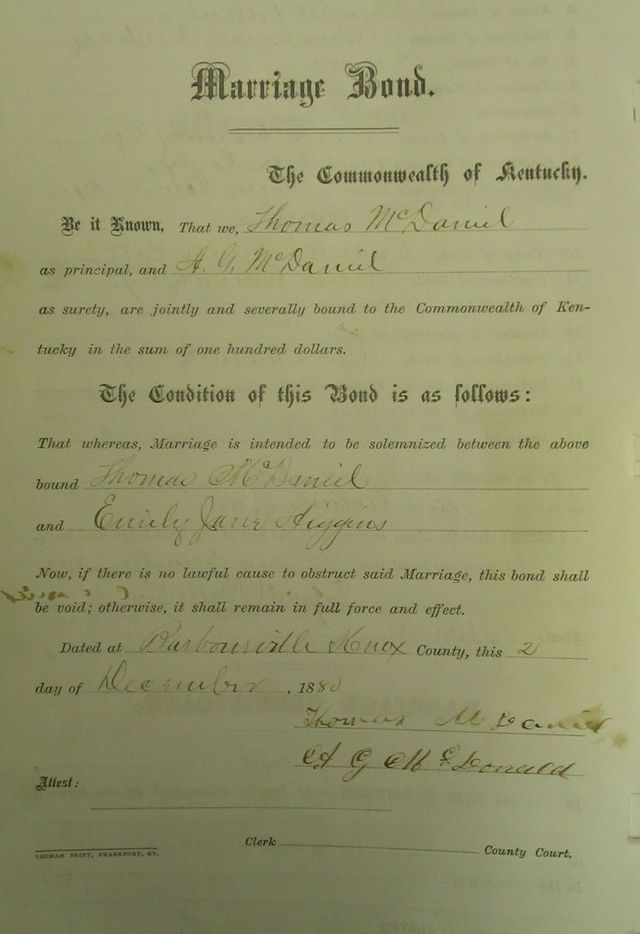 Marriage Bond.
The Commonwealth of Kentucky.
Be it Known, That we, Thomas McDaniel
as principal, and A. G. McDaniel
as surety, are jointly and severally bound to the Commonwealth of Ken-
tucky in the sum of one hundred dollars.
The Condition of this Bond is as follows:
That whereas, Marriage is intended to be solemnized between the above
bound Thomas McDaniel
and Emily Jane Higgins
Now, if there is no lawful cause to obstruct said Marriage, this bond shall
be void; otherwise, it shall remain in full force and effect.
Dated at Barbourville Knox County, this 2
day of December, 1880
Thomas McDaniel
A G McDonald
Attest:
Clerk County Court.
YEOMAN PRINT, FRANKFORT, KY.